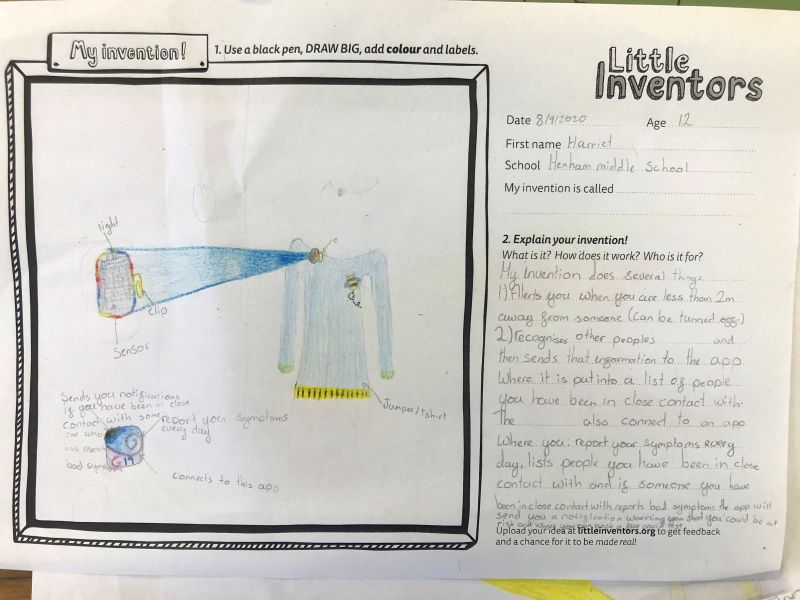 My invention!
1. Use a black pen, DRAW BIG, add colour and labels.
Little
Inventors
Date 8/9/2020 Age 12
First name Harriet
School Hexham middle School
My invention is called
light
clip
Sensor
Jumper/tshirt
Sends you notifications
if you have been in close
contact with some
one who
has report
bad sym
report your symptoms
every day
C 19
Connects to this app
2. Explain your invention!
What is it? How does it work? Who is it for?
My Invention does several things
1) Alerts you when you are less than 2m
away from someone (can be turned off)
2) recognises other peoples and
then sends that information to the app
Where it is put into a list of people
you have been in close contact with.
The also connect to an app
Where you: report your symptoms every
day, lists people you have been in close
contact with and if someone you have
been in close contact with reports bad symptom the app will
send you a notification warning you that you could be at
risk and where you can book a
Upload your idea at littleinventors.org to get feedback
and a chance for it to be made real!